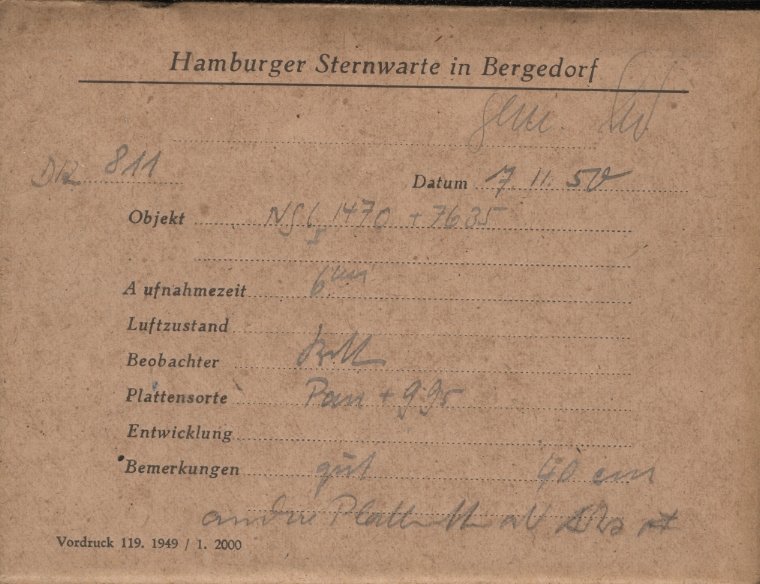 Hamburger Sternwarte in Bergedorf
811
Datum 7. 11. 50
Objekt NGC 1470 + 7635
I
Aufnahmezeit 6 min
Luftzustand
Beobachter
Plattensorte Pan +
Entwicklung
Bemerkungen gut 40 cm
andre
Vordruck 119. 1949 / 1. 2000